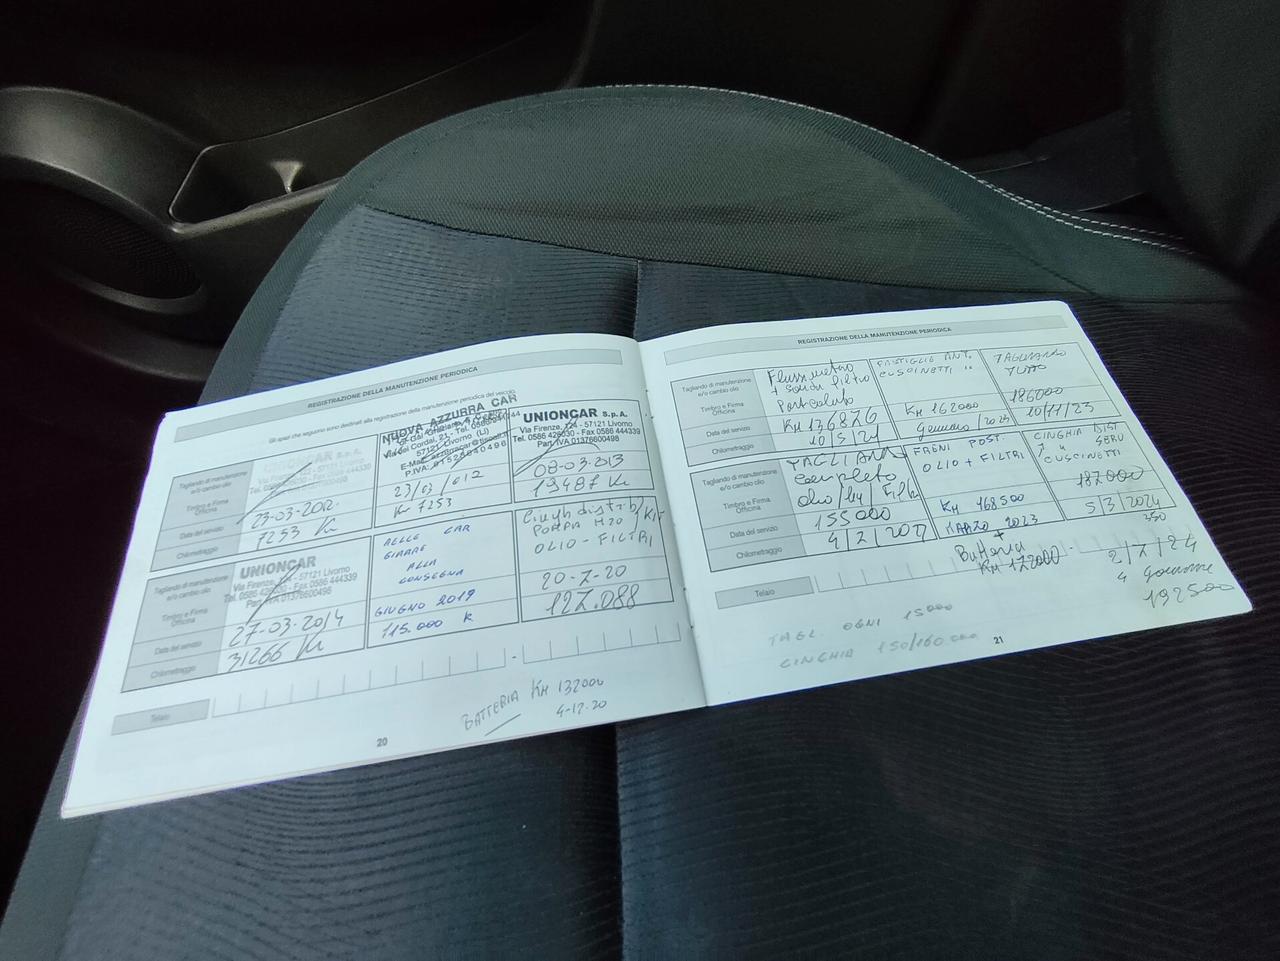 REGISTRAZIONE DELLA MANUTENZIONE PERIODICA
Gli spazi che seguono sono destinati alla registrazione della manutenzione periodica del veicolo
Tagliando di manutenzione
e/o cambio olio
Timbro e Firma
Officina
Data del servizio
Chilometraggio
UNIONCAR S.p.A.
23-03-2012
7253 Km
NUOVA AZZURRA CAR
57121 Livorno (LI)
23/03/012
Km 7253
UNIONCAR S.p.A.
Via Firenze, 124 - 57121 Livorno
Tel. 0586 426030 - Fax 0586 444339
Part. IVA 01376600498
08-03-2013
19487 Km
Tagliando di manutenzione
e/o cambio olio
Timbro e Firma
Officina
Data del servizio
Chilometraggio
UNIONCAR
Via Firenze, 124 - 57121 Livorno
Tel. 0586 426030 - Fax 0586 444339
Part. IVA 01376600498
27-03-2014
31266 Km
CAR
ALLA
CONSEGNA
GIUGNO 2019
115.000 K
Cingh distrib/KIT
POMPA H20
OLIO - FILTRI
20-7-20
127.088
Telaio
BATTERIA KM 132000
4-12-20
20
REGISTRAZIONE DELLA MANUTENZIONE PERIODICA
Tagliando di manutenzione
e/o cambio olio
Timbro e Firma
Officina
Data del servizio
Chilometraggio
Flussimetro
+ Filtro
KM 136876
10/5/21
PASTIGLIE ANT.
CUSCINETTI "
KM 162000
Gennaio/2023
TAGLIANDO
TUTTO
186000
10/11/23
Tagliando di manutenzione
e/o cambio olio
Timbro e Firma
Officina
Data del servizio
Chilometraggio
TAGLIANDO
Completo
olio/ /Filtri
155000
4/2/2022
FRENI POST.
OLIO + FILTRI
KM 168500
MARZO 2023
+
Batteria
KM 172000
CINGHIA DIST
" SERV
CUSCINETTI
187000
5/3/2024
350
2/7/24
4 gomme
192500
Telaio
TAGL. OGNI 15000
CINGHIA 150/160.000
21